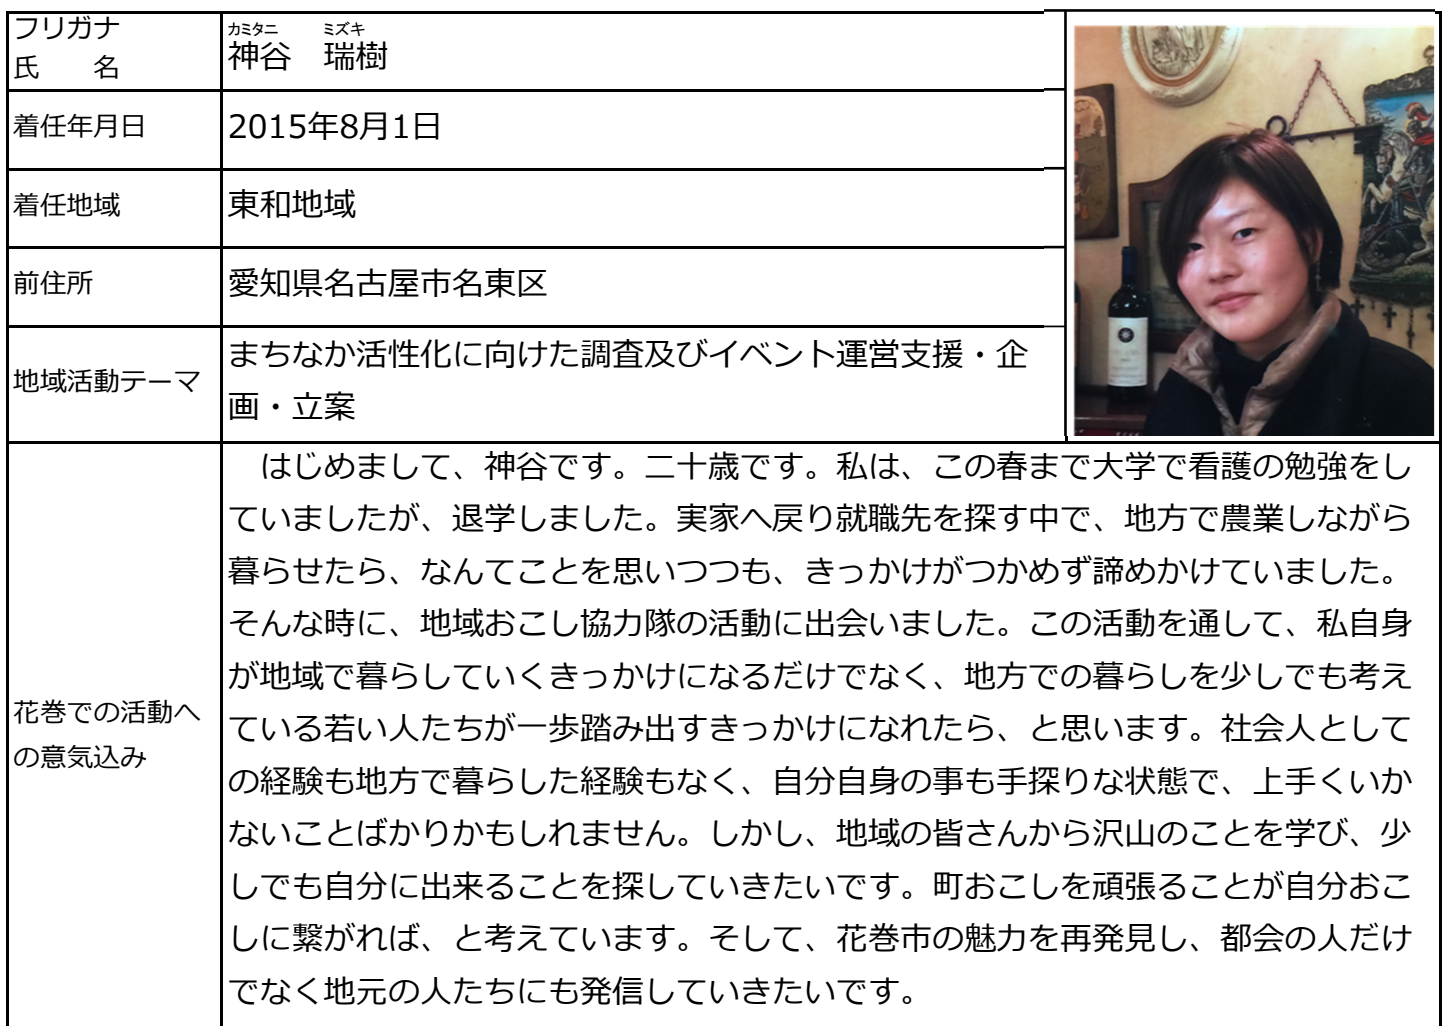 フリガナ
氏　　名
カミタニ　ミズキ
神谷　瑞樹
着任年月日
2015年8月1日
着任地域
東和地域
前住所
愛知県名古屋市名東区
地域活動テーマ
まちなか活性化に向けた調査及びイベント運営支援・企
画・立案
花巻での活動へ
の意気込み
　はじめまして、神谷です。二十歳です。私は、この春まで大学で看護の勉強をし
ていましたが、退学しました。実家へ戻り就職先を探す中で、地方で農業しながら
暮らせたら、なんてことを思いつつも、きっかけがつかめず諦めかけていました。
そんな時に、地域おこし協力隊の活動に出会いました。この活動を通して、私自身
が地域で暮らしていくきっかけになるだけでなく、地方での暮らしを少しでも考え
ている若い人たちが一歩踏み出すきっかけになれたら、と思います。社会人として
の経験も地方で暮らした経験もなく、自分自身の事も手探りな状態で、上手くいか
ないことばかりかもしれません。しかし、地域の皆さんから沢山のことを学び、少
しでも自分に出来ることを探していきたいです。町おこしを頑張ることが自分おこ
しに繋がれば、と考えています。そして、花巻市の魅力を再発見し、都会の人だけ
でなく地元の人たちにも発信していきたいです。